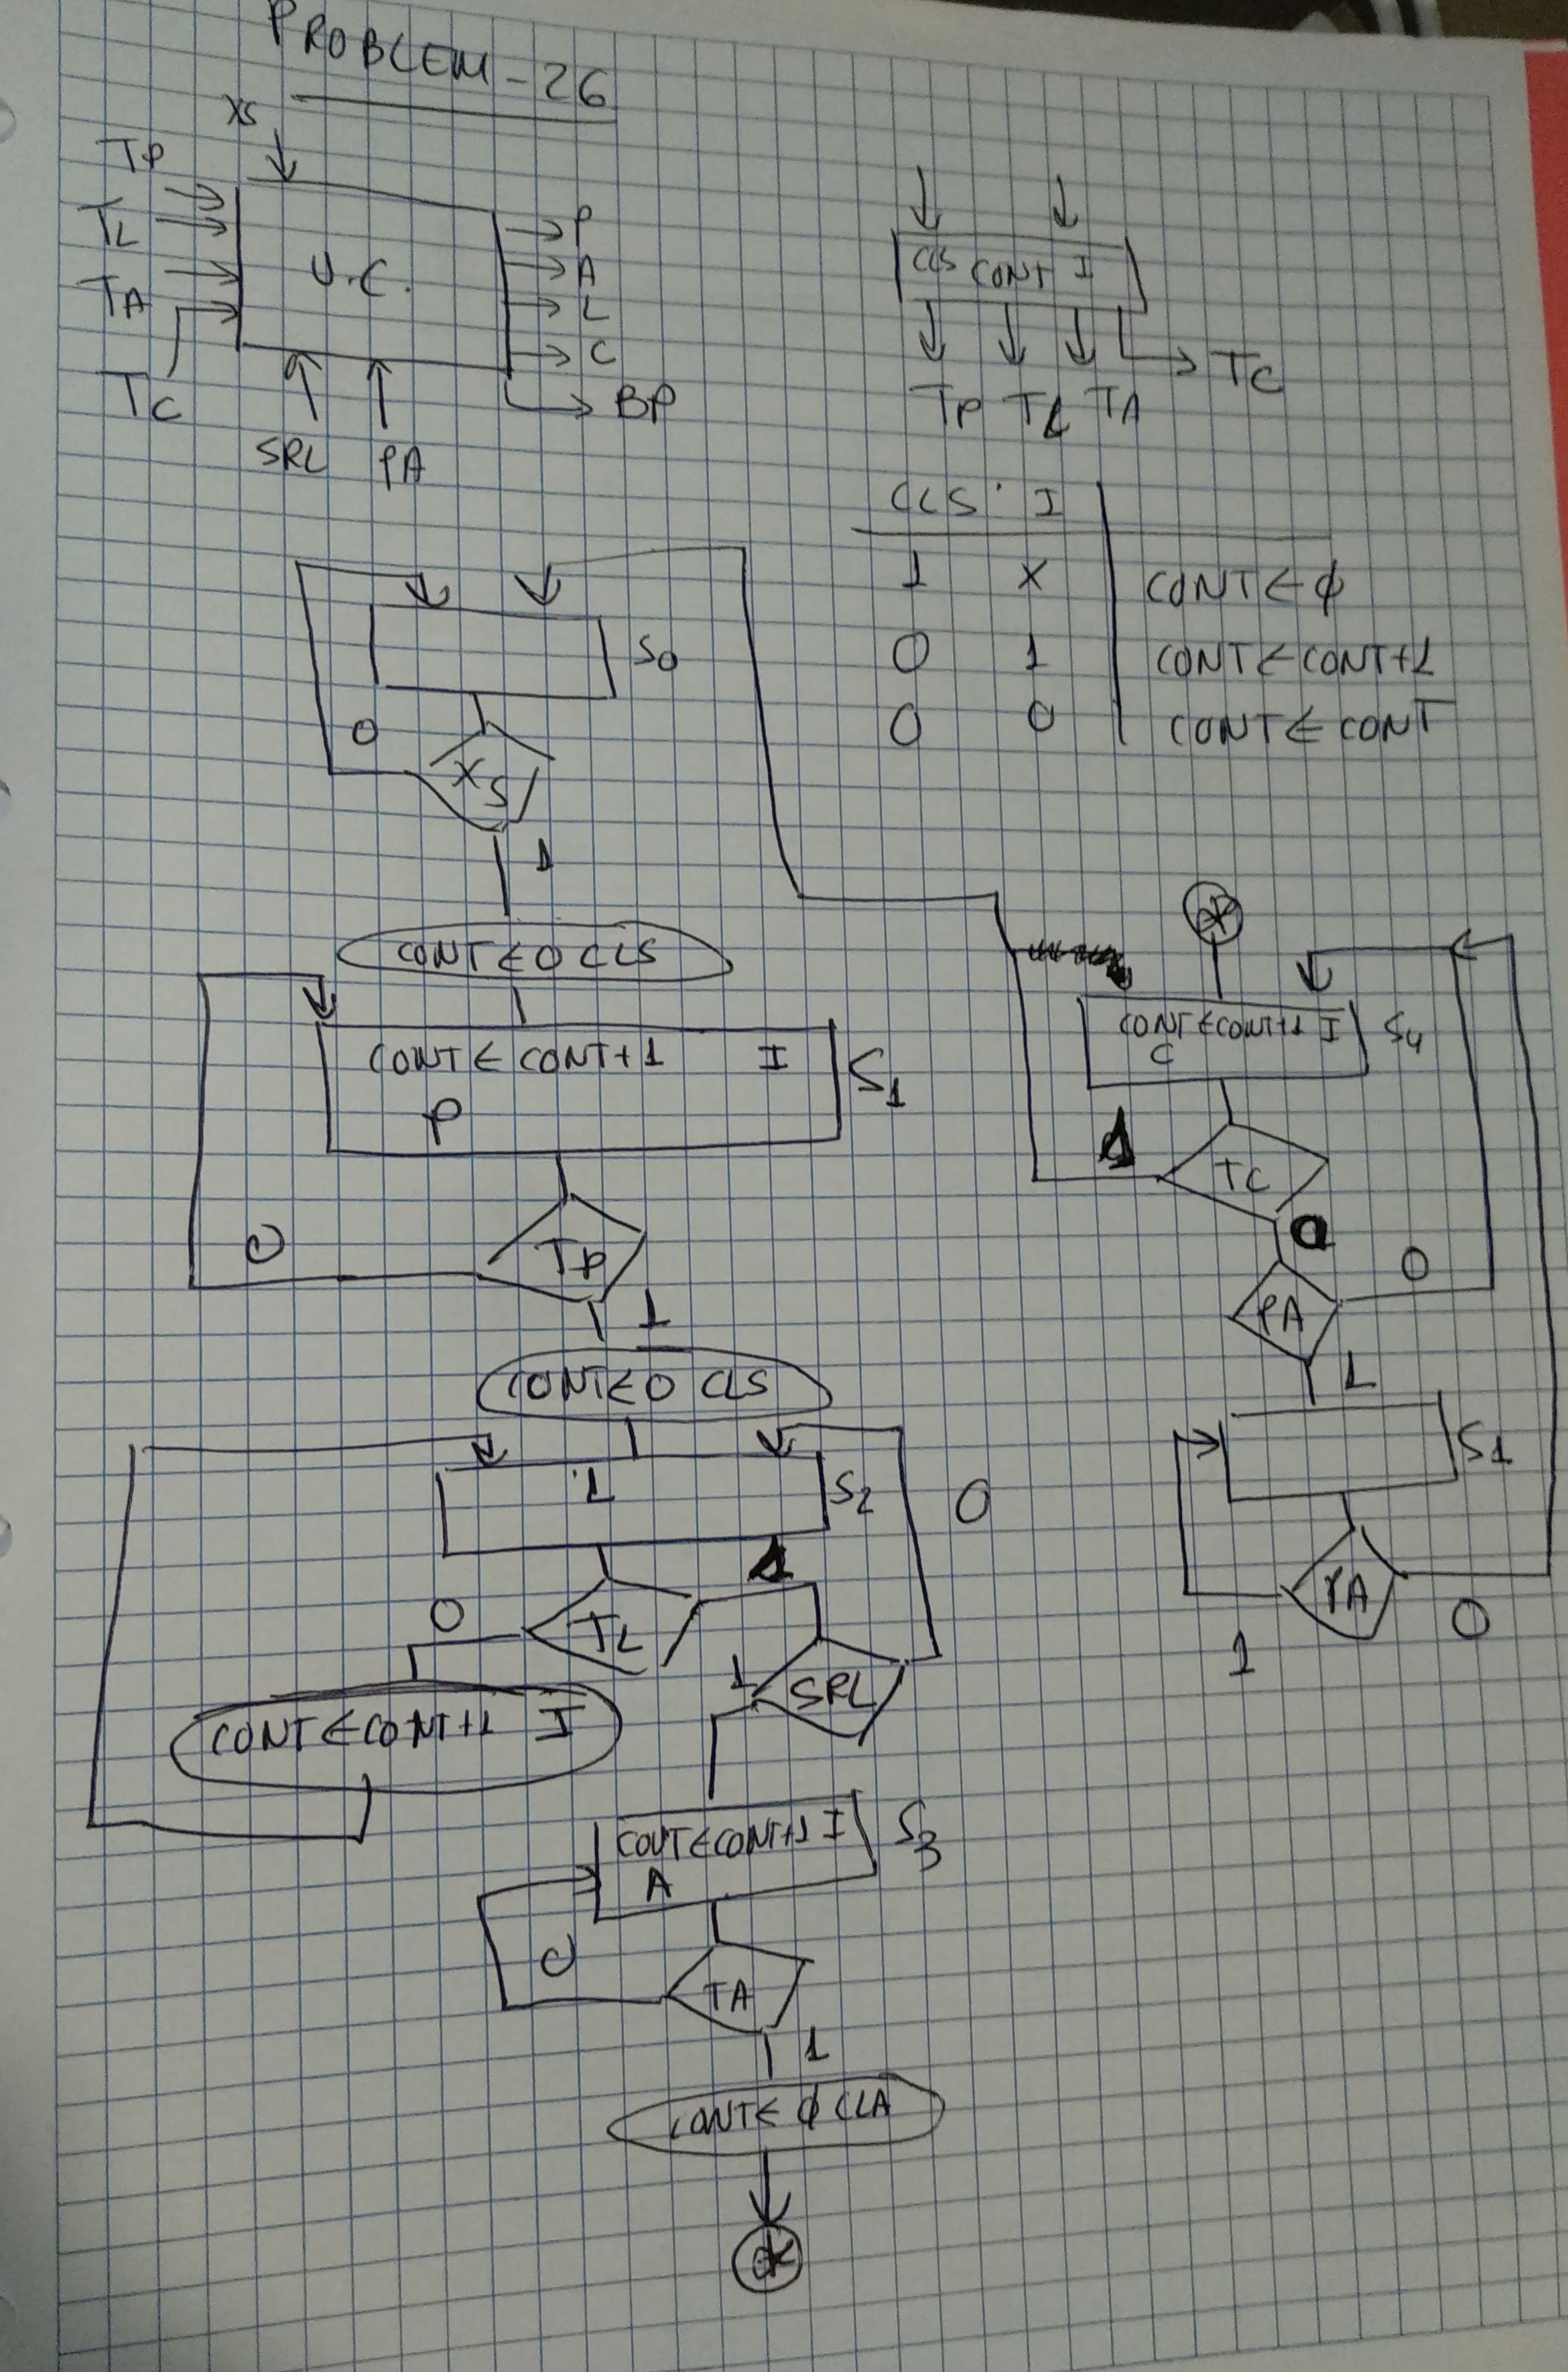 PROBLEM-26
XS
TP
TL
TA
TC
U.C.
P
A
L
C
BP
SRL PA
CLS CONT I
TP TL TA TC
CLS I
1 X CONT←φ
0 1 CONT←CONT+1
0 0 CONT←CONT
S0
0
XS
1
CONT←0 CLS
CONT←CONT+1 I
P
S1
0
TP
1
CONT←0 CLS
L
S2
0
TL
1
0
SRL
1
CONT←CONT+1 I
CONT←CONT+1 I
A
S3
0
TA
1
CONT←φ CLA
*
*
CONT←CONT+1 I
C
S4
1
TC
0
PA
0
1
S1
PA
1
0